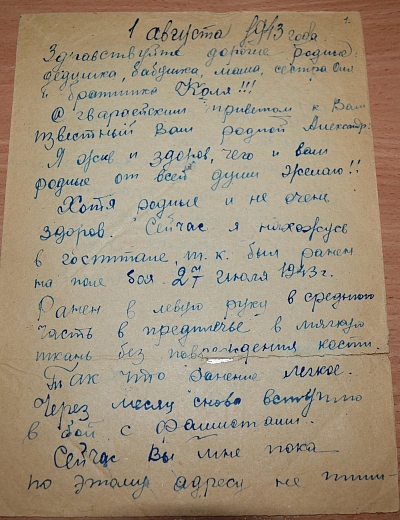 1.
1 августа 1943 года.
Здравствуйте дорогие родные:
дедушка, бабушка, мама, сестра Оля
и братишка Коля!!!
С гвардейским приветом к Вам
известный Вам родной Александр.
Я жив и здоров, чего и вам
родные от всей души желаю!!
Хотя родные и не очень
здоров. Сейчас я нахожусь
в госпитале, т.к. был ранен
на поле боя 27 июля 1943 г.
Ранен в левую руку в среднюю
часть в предплечье в мягкую
ткань без повреждения кости.
Так что ранение легкое.
Через месяц снова вступлю
в бой с фашистами.
Сейчас Вы мне пока
по этому адресу не пиши-